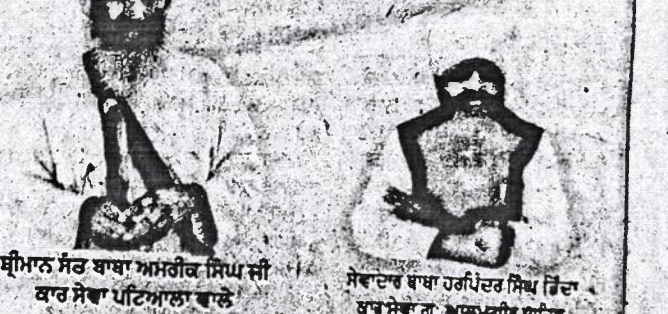 ਸ਼੍ਰੀਮਾਨ ਸੰਤ ਬਾਬਾ ਅਮਰੀਕ ਸਿੰਘ ਜੀ
ਕਾਰ ਸੇਵਾ ਪਟਿਆਲਾ ਵਾਲੇ
ਸੇਵਾਦਾਰ ਬਾਬਾ ਹਰਪਿੰਦਰ ਸਿੰਘ ਭਿੰਡਾ
ਕਾਰ ਸੇਵਾ ਗੁ: